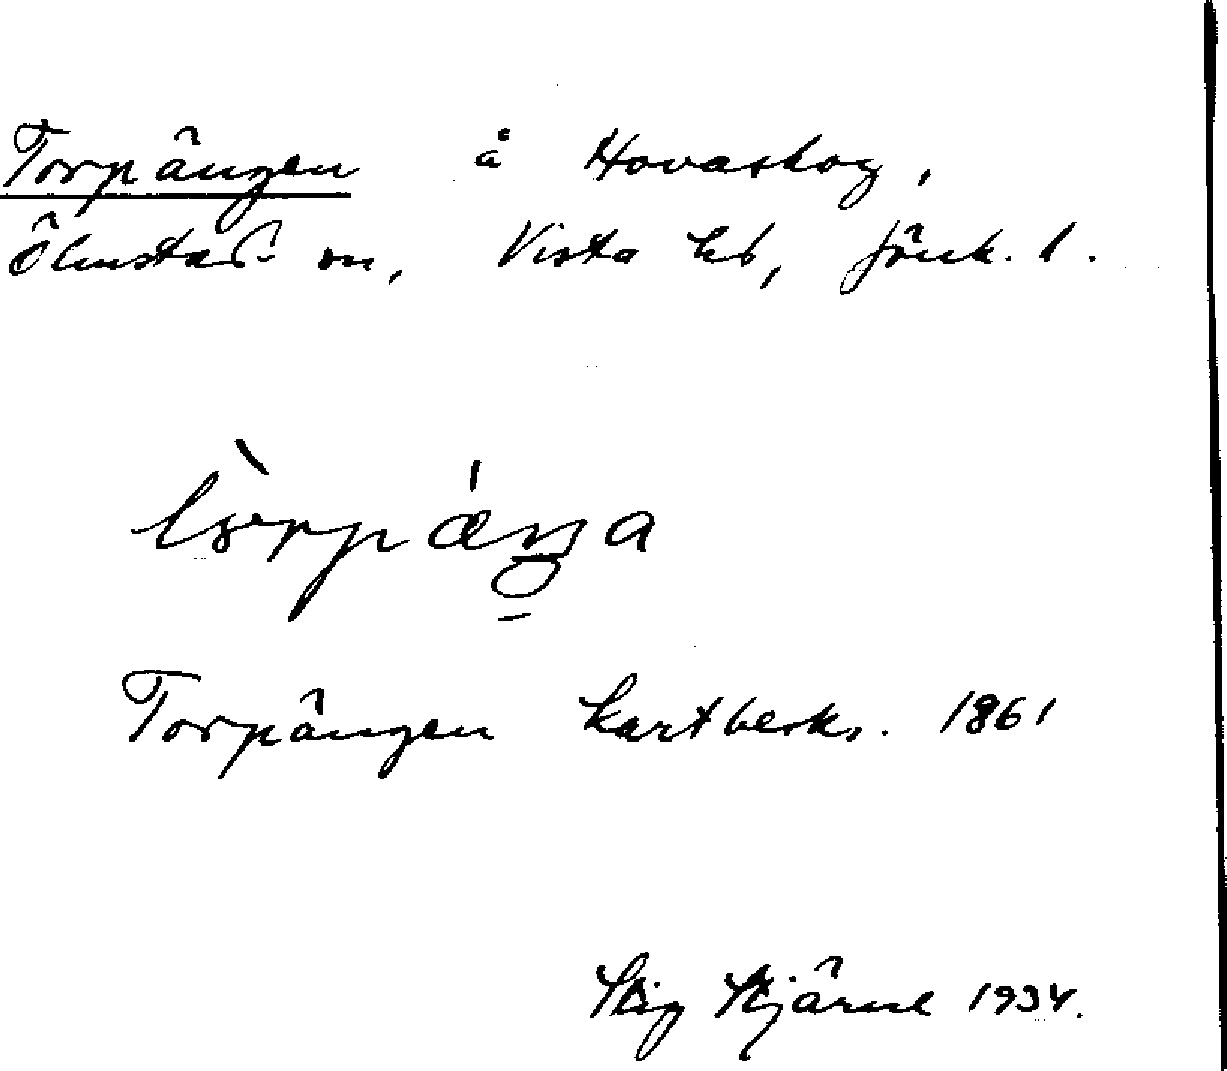 Torpängen å Hovaskog,
Ölmstad sn, Vista hd, Jönk. l.
Torpängen kartbeskr. 1861
Stig Stjärne 1934.